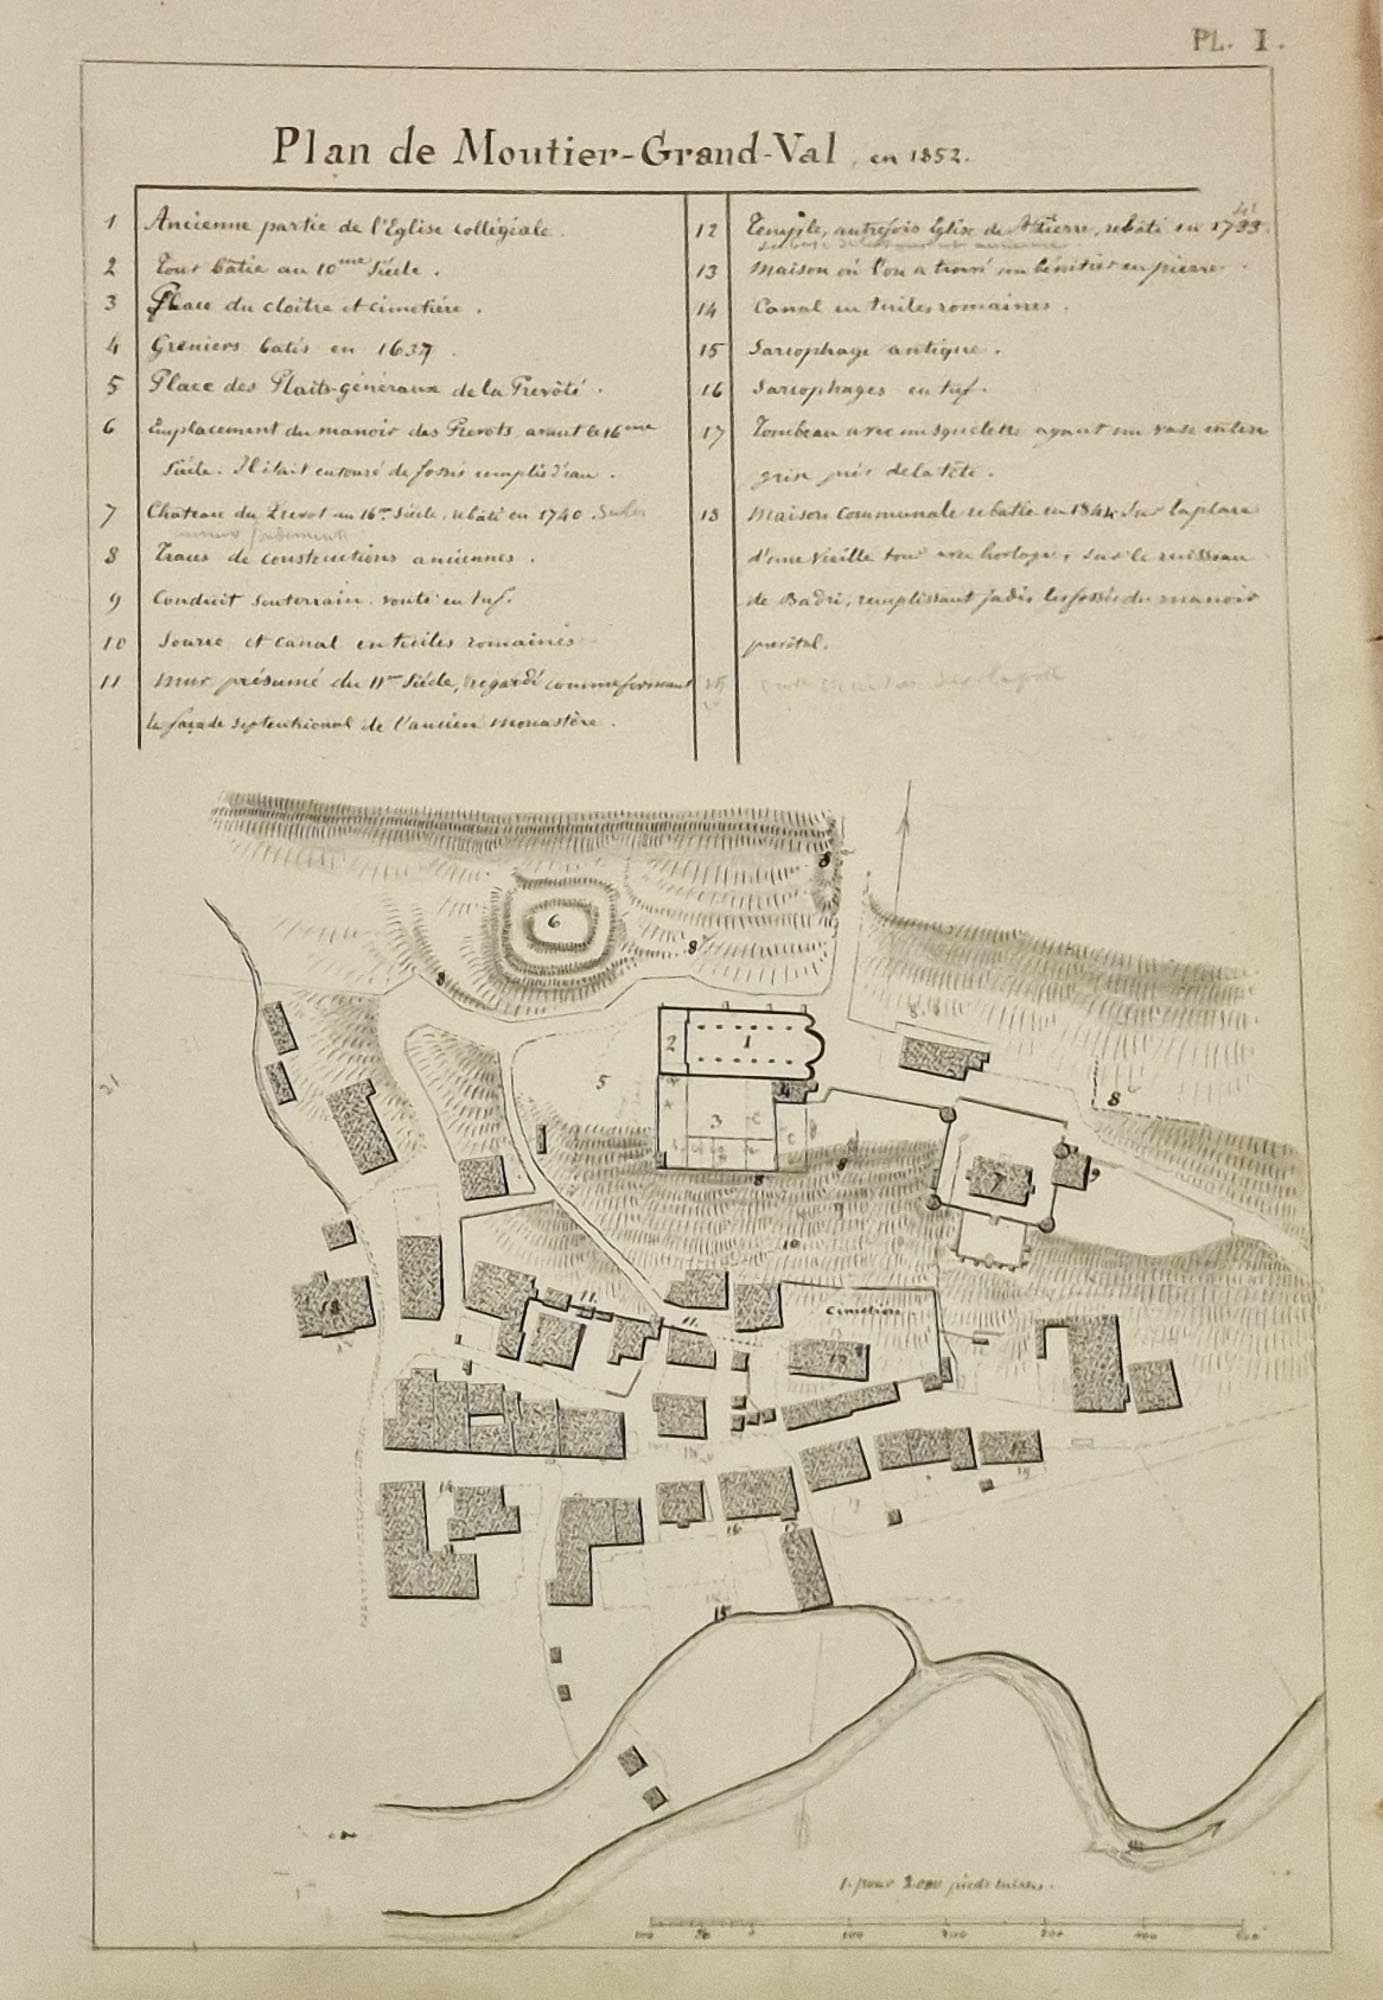 PL. I.
Plan de Moutier-Grand-Val, en 1852.
1 Ancienne partie de l'Eglise collégiale.
2 Tour bâtie au 10me Siécle.
3 Place du cloitre et cimetiére.
4 Greniers batis en 1637.
5 Place des Plaits-généraux de la Prevôté.
6 Emplacement du manoir des Prevots avant le 16me
Siécle. Il était entouré de fossés remplis d'eau.
7 Château du Prevot au 16me Siécle, rebâti en 1740. Sur les
anciens fondements
8 Traces de constructions anciennes.
9 Conduit Souterrain vouté en tuf.
10 Source et canal en tuiles romaines
11 Mur présumé du 11me Siécle, regardé comme formant
la façade septentrional de l'ancien monastère.
12 Temple, autrefois Eglise de St Pierre, rebâti en 17
13 Maison où l'on a trouvé un bénitier en pierre.
14 Canal en tuiles romaines.
15 Sarcophage antique.
16 Sarcophages en tuf.
17 Tombeau avec un squelette ayant un vase en terre
grise près de la tête.
18 Maison Communale rebatie en 1844 sur la place
d'une vieille tour avec horloge, sur le ruisseau
de Badri, remplissant jadis les fossés du manoir
prevôtal.
8
6
8
8
8.
2
1
5
4
3
8
8
8
7
9
10
18
11.
11.
Cimetière
14
16
15
1. pour 2.000 pieds suisses.
100 50 0 100 200 300 400 500